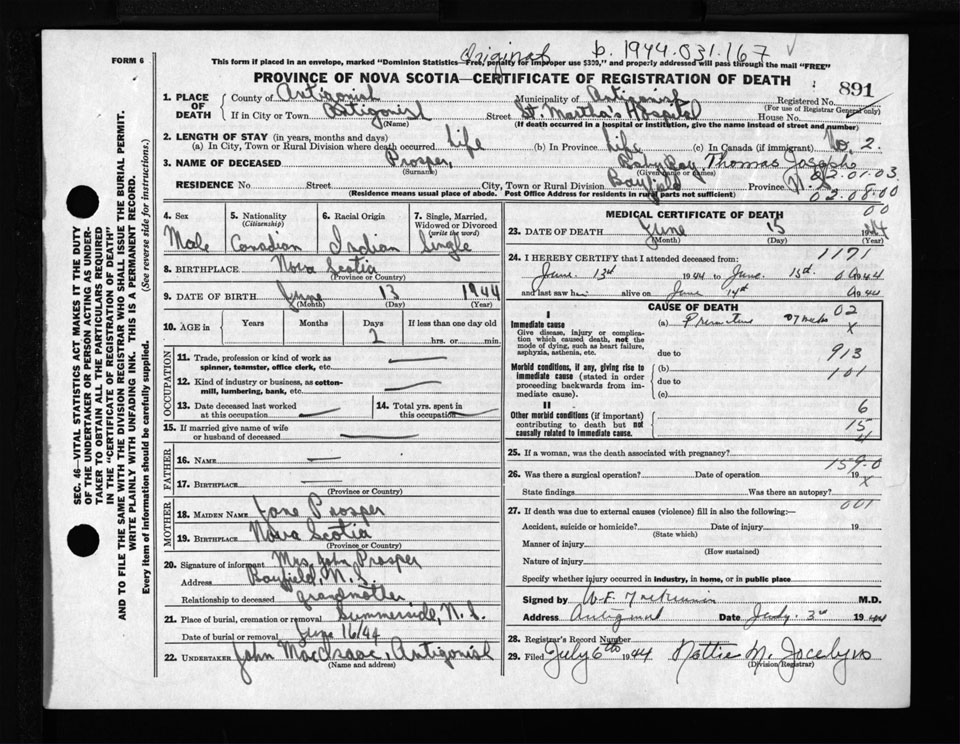 Original b. 1944.031.167
FORM 6
This form if placed in an envelope, marked "Dominion Statistics—Free, penalty for improper use $300," and properly addressed will pass through the mail "FREE"
PROVINCE OF NOVA SCOTIA—CERTIFICATE OF REGISTRATION OF DEATH
891
1. PLACE OF DEATH
County of Antigonish Municipality of Antigonish Registered No.
(For use of Registrar General only)
If in City or Town Antigonish Street St. Martha's Hospital House No.
(Name) (If death occurred in a hospital or institution, give the name instead of street and number)
2. LENGTH OF STAY (in years, months and days)
(a) In City, Town or Rural Division where death occurred Life (b) In Province Life (c) In Canada (if immigrant)
No. 2.
3. NAME OF DECEASED Prosper, Baby Boy Thomas Joseph
(Surname) (Given name or names)
02.01.03
RESIDENCE No. Street City, Town or Rural Division Bayfield Province N.S.
(Residence means usual place of abode. Post Office Address for residents in rural parts not sufficient)
02.08.00
00
4. Sex
Male
5. Nationality (Citizenship)
Canadian
6. Racial Origin
Indian
7. Single, Married, Widowed or Divorced (write the word)
Single
8. BIRTHPLACE Nova Scotia
(Province or Country)
9. DATE OF BIRTH June 13 1944
(Month) (Day) (Year)
10. AGE in
Years Months Days If less than one day old
2 hrs. or min.
OCCUPATION
11. Trade, profession or kind of work as spinner, teamster, office clerk, etc.
12. Kind of industry or business, as cotton-mill, lumbering, bank, etc.
13. Date deceased last worked at this occupation
14. Total yrs. spent in this occupation
15. If married give name of wife or husband of deceased
FATHER
16. NAME
17. BIRTHPLACE
(Province or Country)
MOTHER
18. MAIDEN NAME Jane Prosper
19. BIRTHPLACE Nova Scotia
(Province or Country)
20. Signature of informant Mrs. John Prosper
Address Bayfield, N.S.
Relationship to deceased grandmother
21. Place of burial, cremation or removal Summerside, N.S.
Date of burial or removal June 16/44
22. UNDERTAKER John MacIsaac, Antigonish
(Name and address)
MEDICAL CERTIFICATE OF DEATH
23. DATE OF DEATH June 15 1944
(Month) (Day) (Year)
1171
24. I HEREBY CERTIFY that I attended deceased from:
June 13th 1944 to June 15th 1944
and last saw him alive on June 14th 1944
CAUSE OF DEATH
02
I
Immediate cause
Give disease, injury or complication which caused death, not the mode of dying, such as heart failure, asphyxia, asthenia, etc.
(a) Premature 7 months
X
due to
913
Morbid conditions, if any, giving rise to immediate cause (stated in order proceeding backwards from immediate cause).
(b)
101
due to
(c)
II
Other morbid conditions (if important) contributing to death but not causally related to immediate cause.
6
15
4
25. If a woman, was the death associated with pregnancy?
159.0
26. Was there a surgical operation? Date of operation 19
X
State findings Was there an autopsy?
001
27. If death was due to external causes (violence) fill in also the following:—
Accident, suicide or homicide? Date of injury 19
(State which)
Manner of injury
(How sustained)
Nature of injury
Specify whether injury occurred in industry, in home, or in public place
Signed by W.F. M.D.
Address Antigonish Date July 3rd 1944
28. Registrar's Record Number
29. Filed July 6th 1944 Nettie M. Jocelyn
(Division Registrar)
SEC. 46—VITAL STATISTICS ACT MAKES IT THE DUTY
OF THE UNDERTAKER OR PERSON ACTING AS UNDER-
TAKER TO OBTAIN ALL THE PARTICULARS REQUIRED
IN THE "CERTIFICATE OF REGISTRATION OF DEATH"
AND TO FILE THE SAME WITH THE DIVISION REGISTRAR WHO SHALL ISSUE THE BURIAL PERMIT.
WRITE PLAINLY WITH UNFADING INK. THIS IS A PERMANENT RECORD.
Every item of information should be carefully supplied. (See reverse side for instructions.)